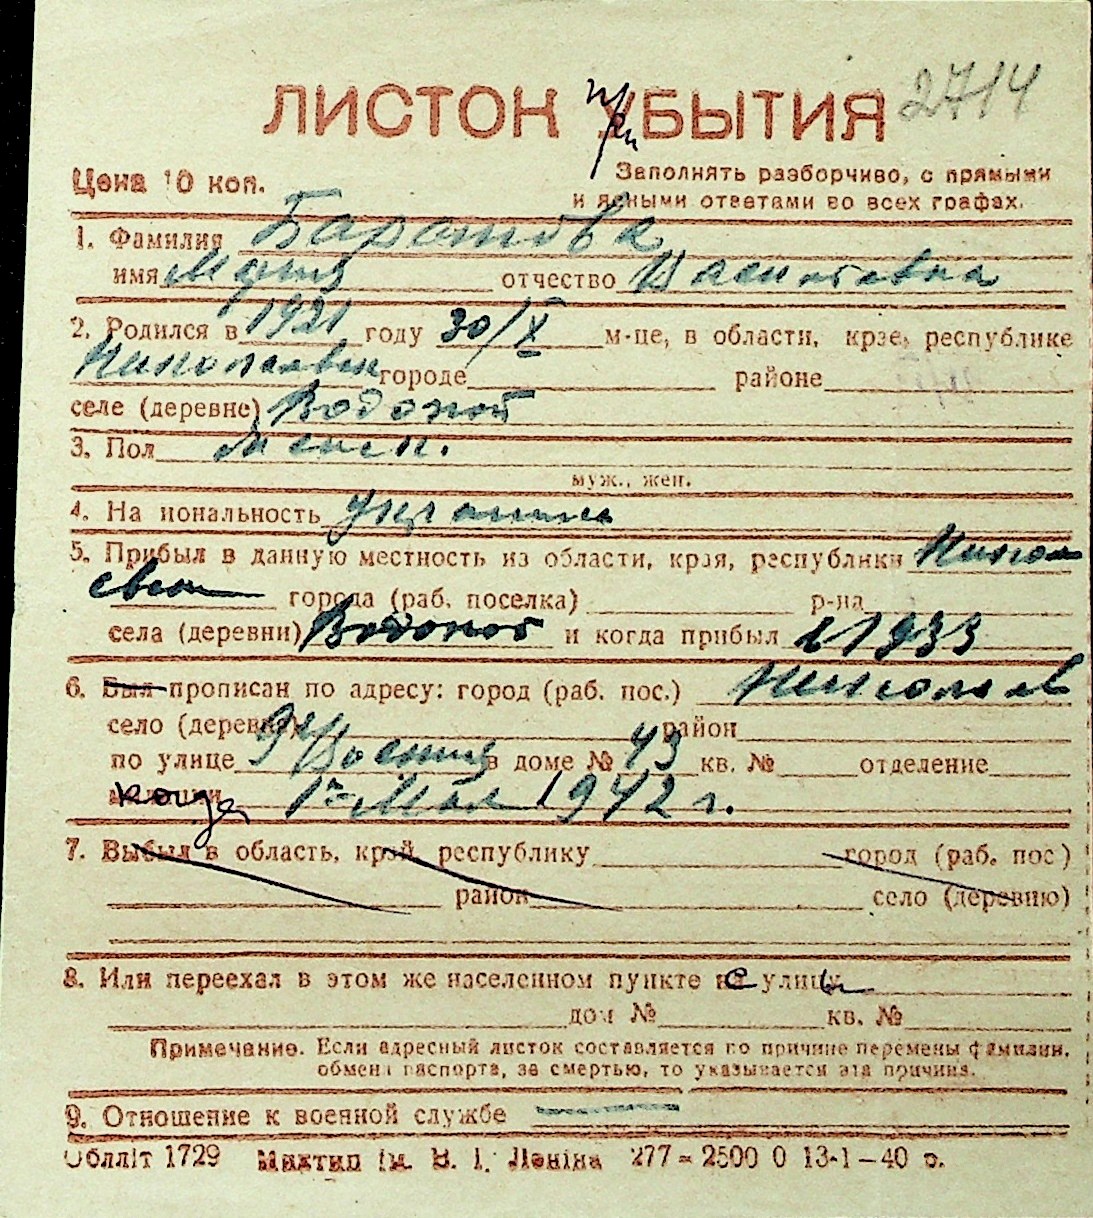 2714
ЛИСТОК УБЫТИЯ
при
Цена 10 коп.
Заполнять разборчиво, с прямыми
и ясными ответами во всех графах.
1. Фамилия
имя Мария отчество Васильевна
2. Родился в 1921 году 30/X м-це, в области, крае, республике
Николаевск городе районе
селе (деревне) Водопой
3. Пол женск.
муж., жен.
4. На иональность украинка
5. Прибыл в данную местность из области, края, республики Никола
евск города (раб. поселка) р-на
села (деревни) Водопой и когда прибыл 1933
6. Был прописан по адресу: город (раб. пос.) Николаев
село (деревня) район
по улице 9я Военная в доме № 43 кв. № отделение
милиции когда 1го Мая 1942 г.
7. Выбыл в область, край, республику город (раб. пос)
район село (деревню)
8. Или переехал в этом же населенном пункте с улицы
дом № кв. №
Примечание. Если адресный листок составляется по причине перемены фамилии,
обмена паспорта, за смертью, то указывается эта причина.
9. Отношение к военной службе
Обллiт 1729 Миктип iм. В. I. Ленiна 277 - 2500 0 13-1-40 р.